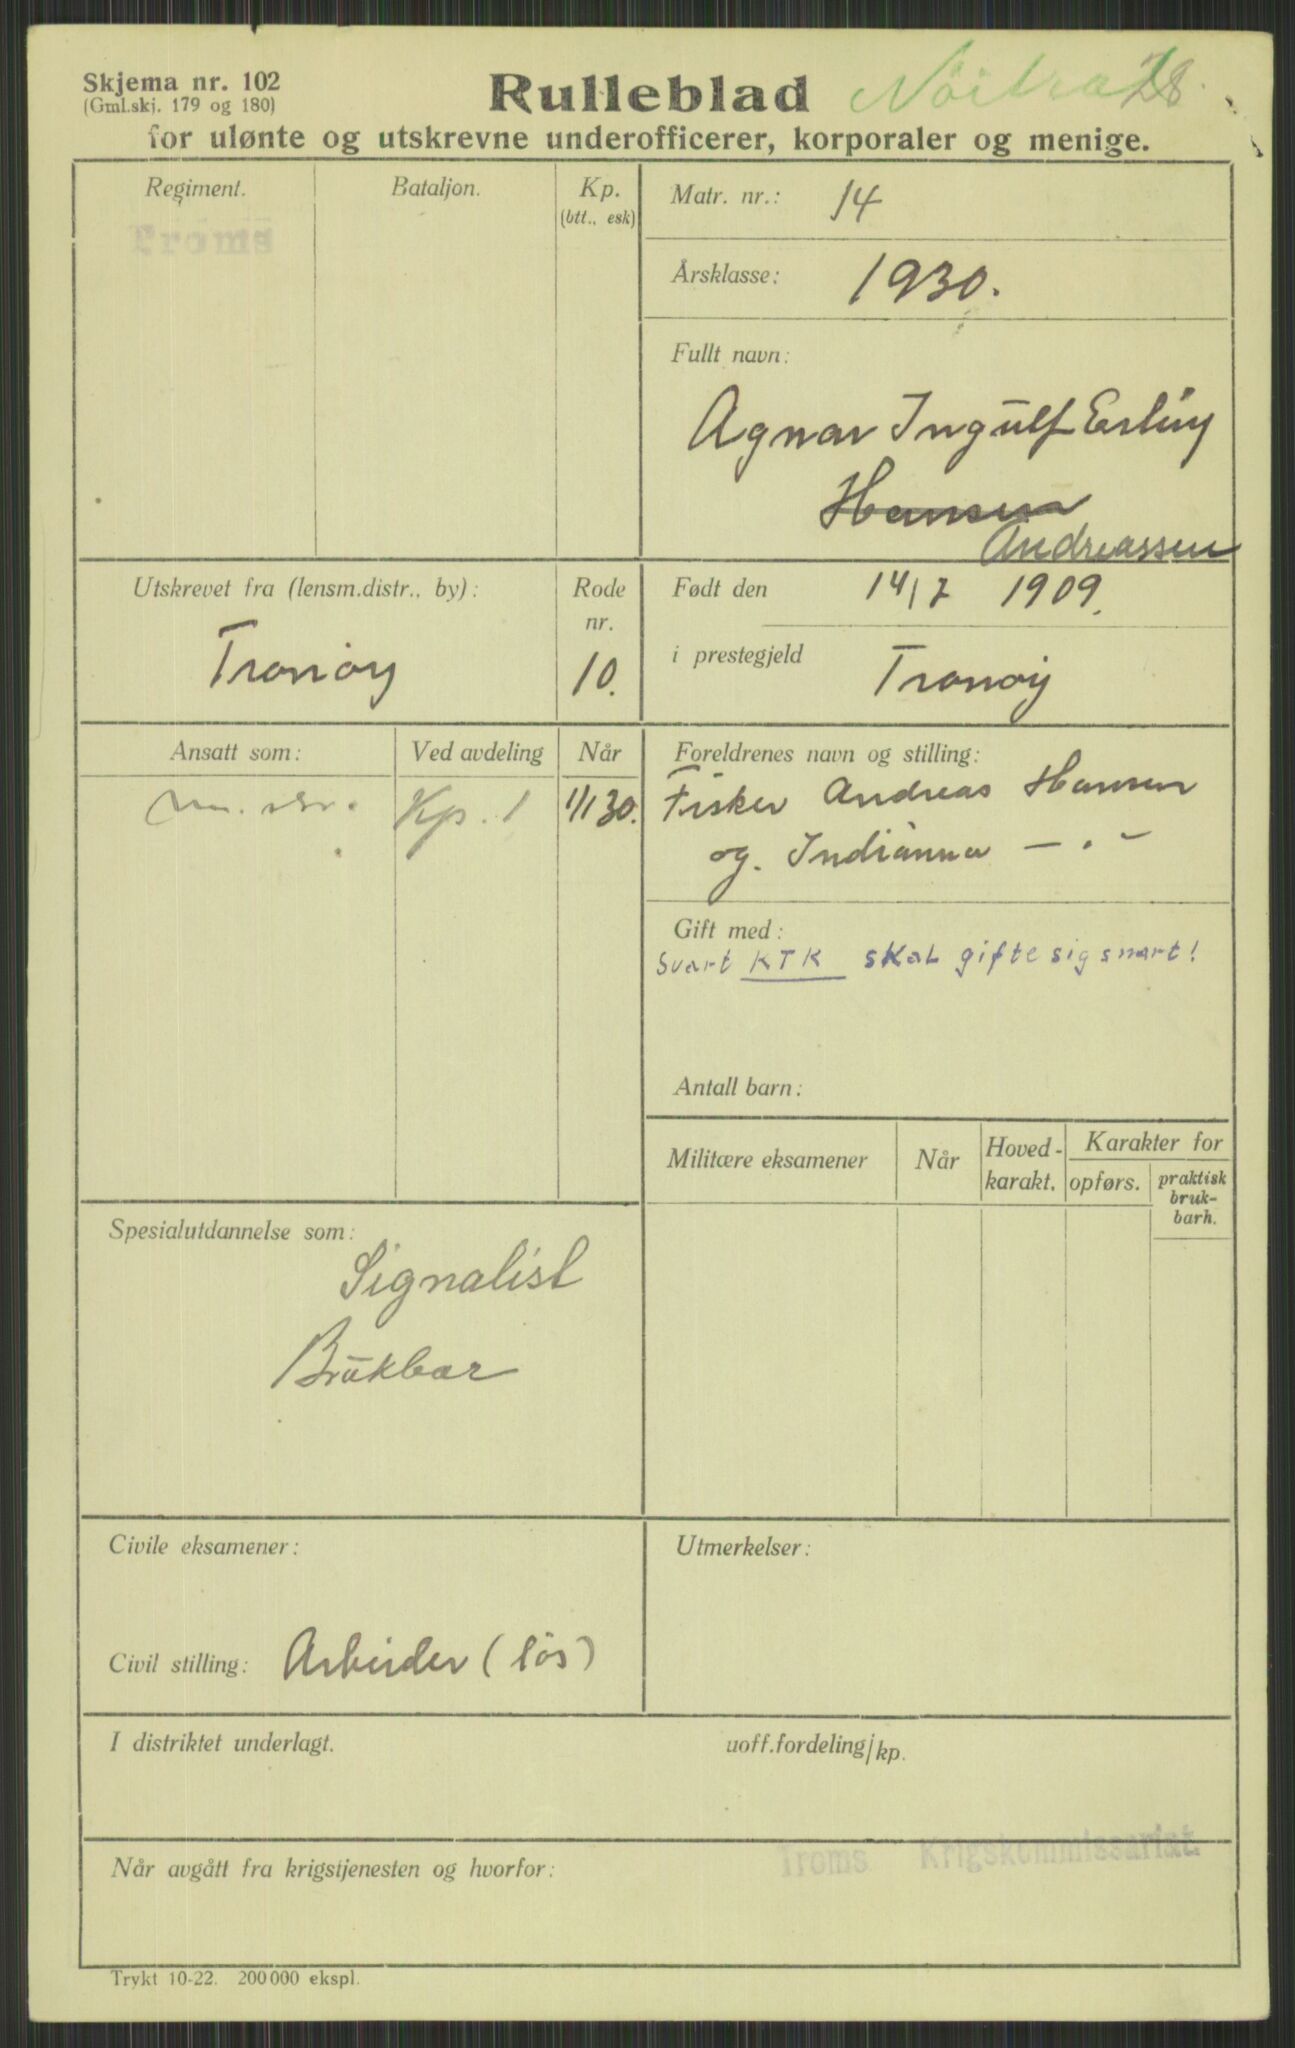 Skjema nr. 102
(Gml.skj. 179 og 180)
Rulleblad
Nöitral
28.
for ulønte og utskrevne underofficerer, korporaler og menige.
Regiment.
Bataljon.
Kp.
(btt., esk)
Troms
Matr. nr.: 14
Årsklasse: 1930.
Fullt navn:
Agnar Ingulf Erling
Hansen
Andreassen
Utskrevet fra (lensm.distr., by):
Rode
nr.
Tranöy
10.
Født den 14/7 1909.
i prestegjeld Tranöy
Ansatt som:
Ved avdeling
Når
Kp. 1
1/1 30.
Foreldrenes navn og stilling:
Fisker Andreas Hansen
og. Indianna — . —
Gift med:
Svart KTK skal gifte sig snart!
Antall barn:
Militære eksamener
Når
Hoved-
karakt.
Karakter for
opførs.
praktisk
bruk-
barh.
Spesialutdannelse som:
Signalist
Brukbar
Civile eksamener:
Utmerkelser:
Civil stilling: Arbeider (lös)
I distriktet underlagt.
uoff.fordeling/kp.
Troms Krigskommissariat
Når avgått fra krigstjenesten og hvorfor:
Trykt 10-22. 200 000 ekspl.